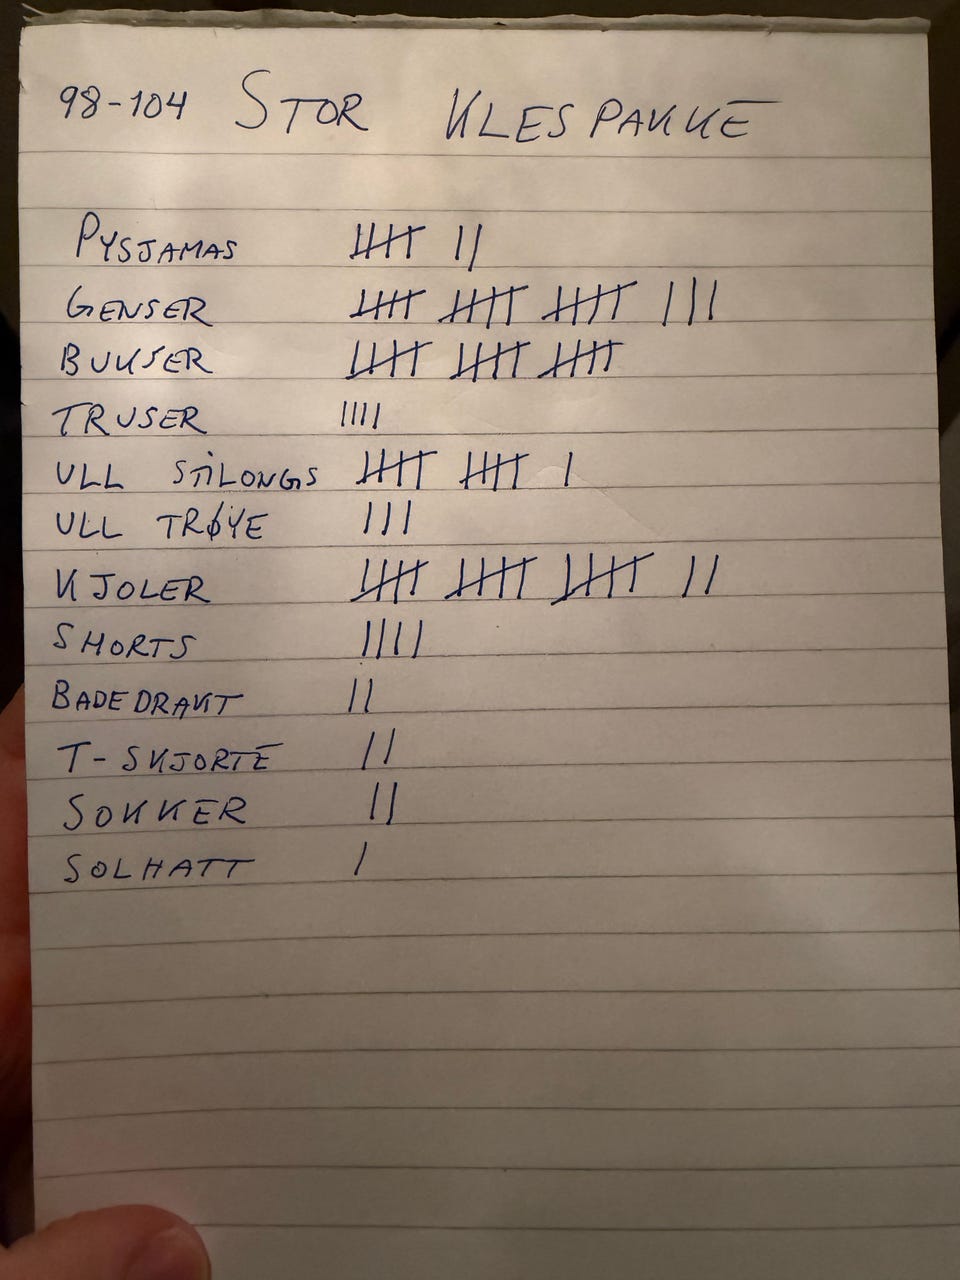 98-104 STOR KLESPAKKE
PYSJAMAS 𝍸 ||
GENSER 𝍸 𝍸 𝍸 |||
BUKSER 𝍸 𝍸 𝍸
TRUSER ||||
ULL STILONGS 𝍸 𝍸 |
ULL TRØYE |||
KJOLER 𝍸 𝍸 𝍸 ||
SHORTS ||||
BADEDRAKT ||
T-SKJORTE ||
SOKKER ||
SOLHATT |